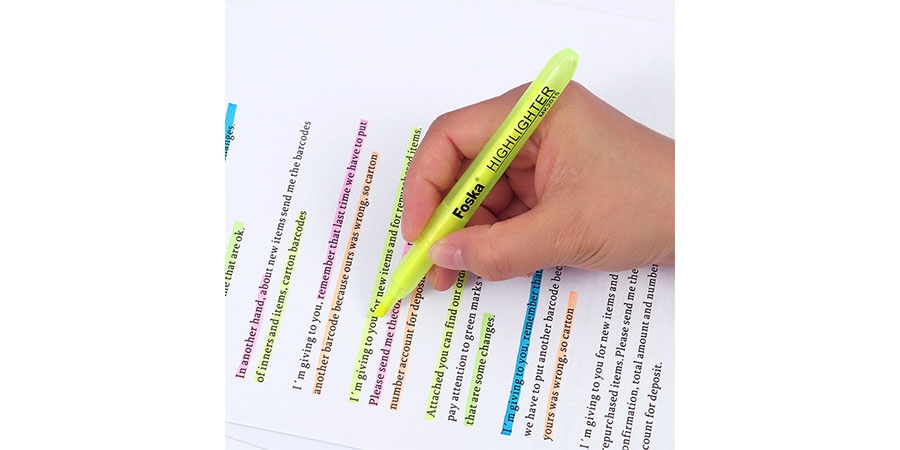 Foska®
HIGHLIGHTER
anges.
me that are ok.
In another hand, about new items send me the barcodes
of inners and items, carton barcodes
I´m giving to you, remember that last time we have to put
another barcode because ours was wrong, so carton
I´m giving to you for new items and for repurchased items.
Please send me thecon
number account for deposi
Attached you can find our ord
pay attention to green marks
that are some changes.
I´m giving to you, remember that
we have to put another barcode bec
yours was wrong, so carton
I´m giving to you for new items and
repurchased items. Please send me the
onfirmation, total amount and number
count for deposit.